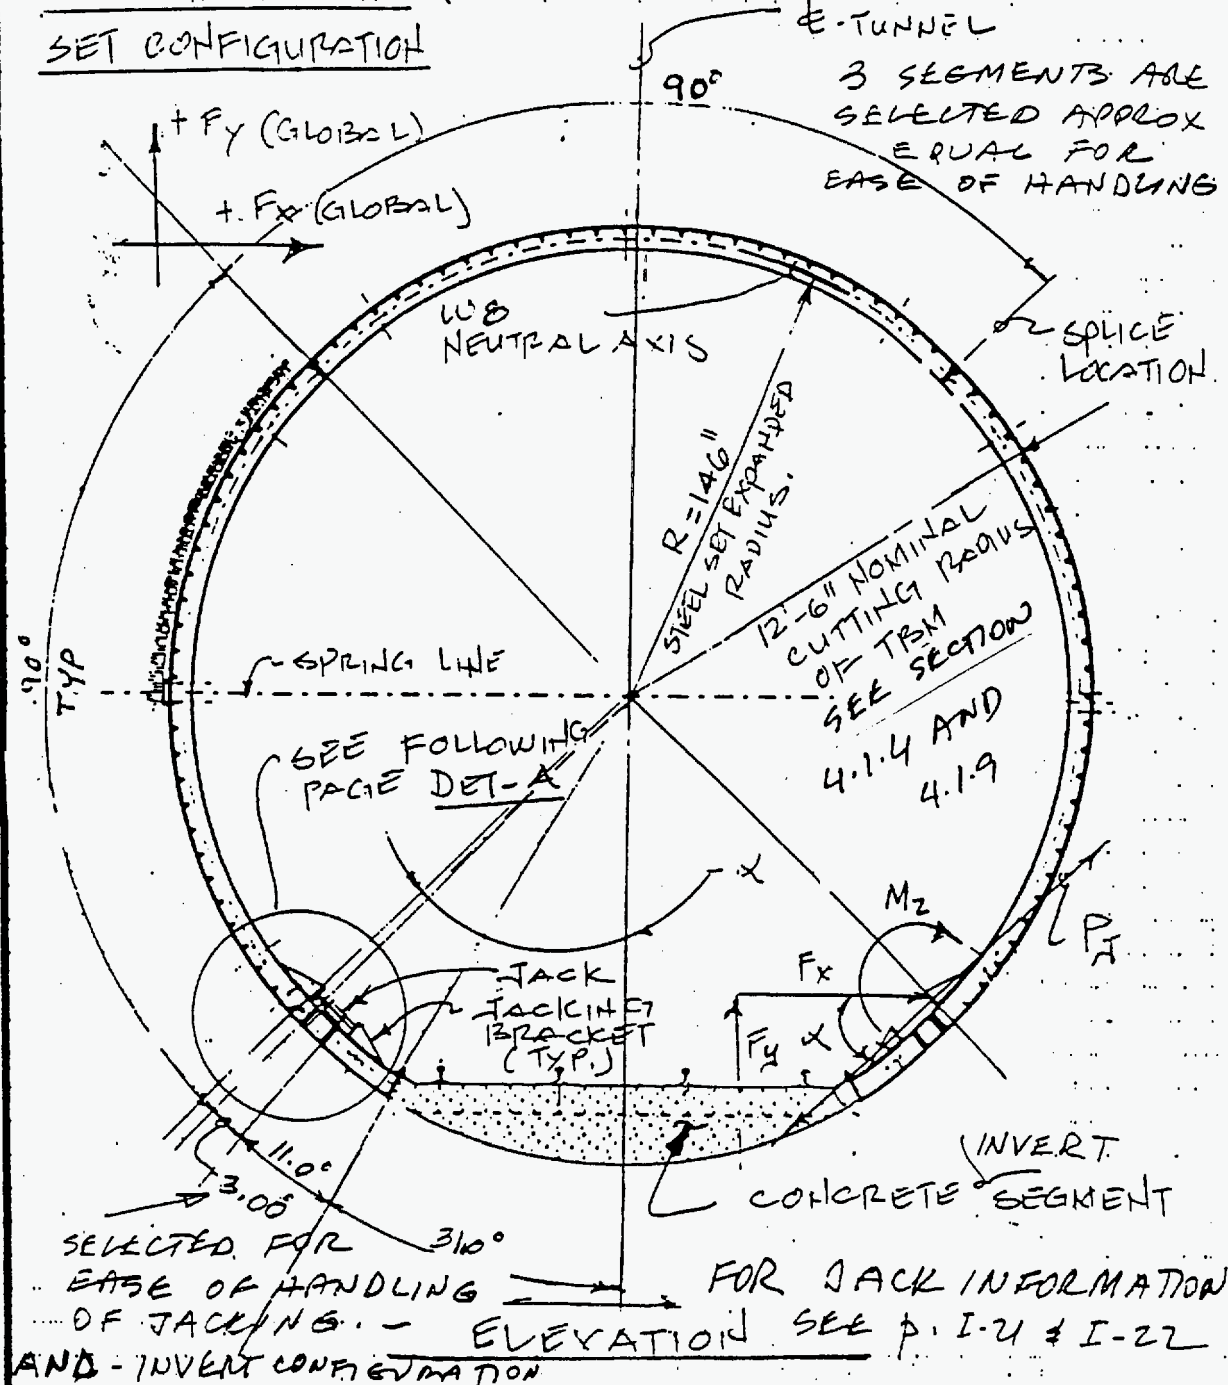 SET CONFIGURATION
℄-TUNNEL
90°
3 SEGMENTS ARE
SELECTED APPROX
EQUAL FOR
EASE OF HANDLING
+ Fy (GLOBAL)
+ Fx (GLOBAL)
W8
NEUTRAL AXIS
SPLICE
LOCATION
R = 146"
STEEL SET EXPANDED
RADIUS.
12'-6" NOMINAL
CUTTING RADIUS
OF TBM
SEE SECTION
4.1.4 AND
4.1.9
90°
TYP
SPRING LINE
SEE FOLLOWING
PAGE DET-A
α
Mz
PJ
Fx
Fy α
JACK
JACKING
BRACKET
(TYP.)
11.0°
3.00°
31.0°
INVERT
CONCRETE SEGMENT
SELECTED FOR
EASE OF HANDLING
OF JACKING. -
AND - INVERT CONFIGURATION
ELEVATION
FOR JACK INFORMATION
SEE p. I-21 & I-22